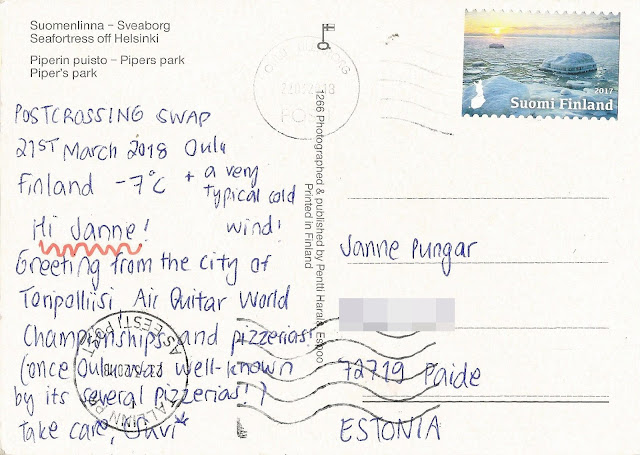 Suomenlinna – Sveaborg
Seafortress off Helsinki
Piperin puisto – Pipers park
Piper's park
POSTCROSSING SWAP
21ST March 2018 Oulu
Finland -7°C + a very
typical cold
wind!
Hi Janne!
Greeting from the city of
Toripolliisi, Air Guitar World
Championships and pizzerias!
(once Oulu was well-known
by its several pizzerias!)
Take care, Ouvi
1266 Photographed & published by Pentti Harala, Espoo
Printed in Finland
2017
Suomi Finland
Janne Pungar
72719 Paide
ESTONIA
EESTI POST